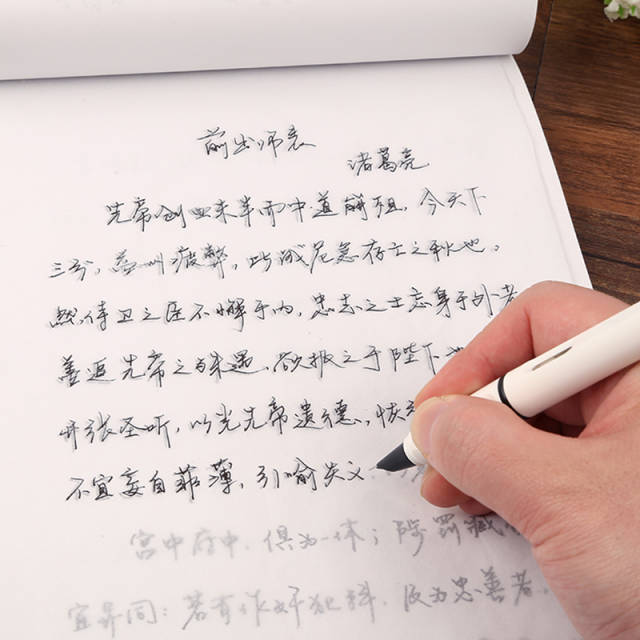 前出师表
诸葛亮
先帝创业未半而中道崩殂，今天下
三分，益州疲弊，此诚危急存亡之秋也。
然侍卫之臣不懈于内，忠志之士忘身于外者
盖追先帝之殊遇，欲报之于陛下也
开张圣听，以光先帝遗德，恢
不宜妄自菲薄，引喻失义
宫中府中，俱为一体；陟罚臧
宜异同：若有作奸犯科，及为忠善者，